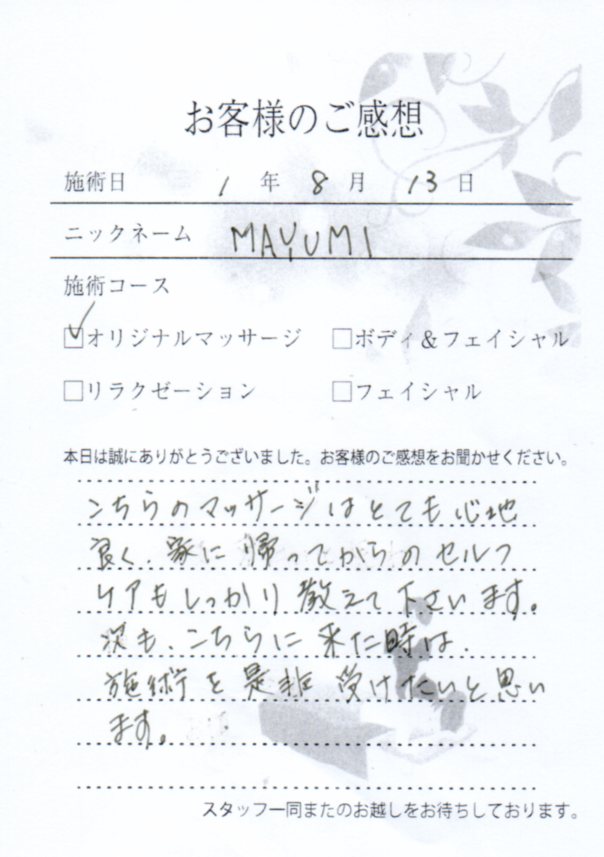 お客様のご感想
施術日 1 年 8 月 13 日
ニックネーム MAYUMI
施術コース
☑オリジナルマッサージ □ボディ&フェイシャル
□リラクゼーション □フェイシャル
本日は誠にありがとうございました。お客様のご感想をお聞かせください。
こちらのマッサージはとても心地
良く、家に帰ってからのセルフ
ケアもしっかり教えて下さいます。
次も、こちらに来た時は、
施術を是非受けたいと思い
ます。
スタッフ一同またのお越しをお待ちしております。